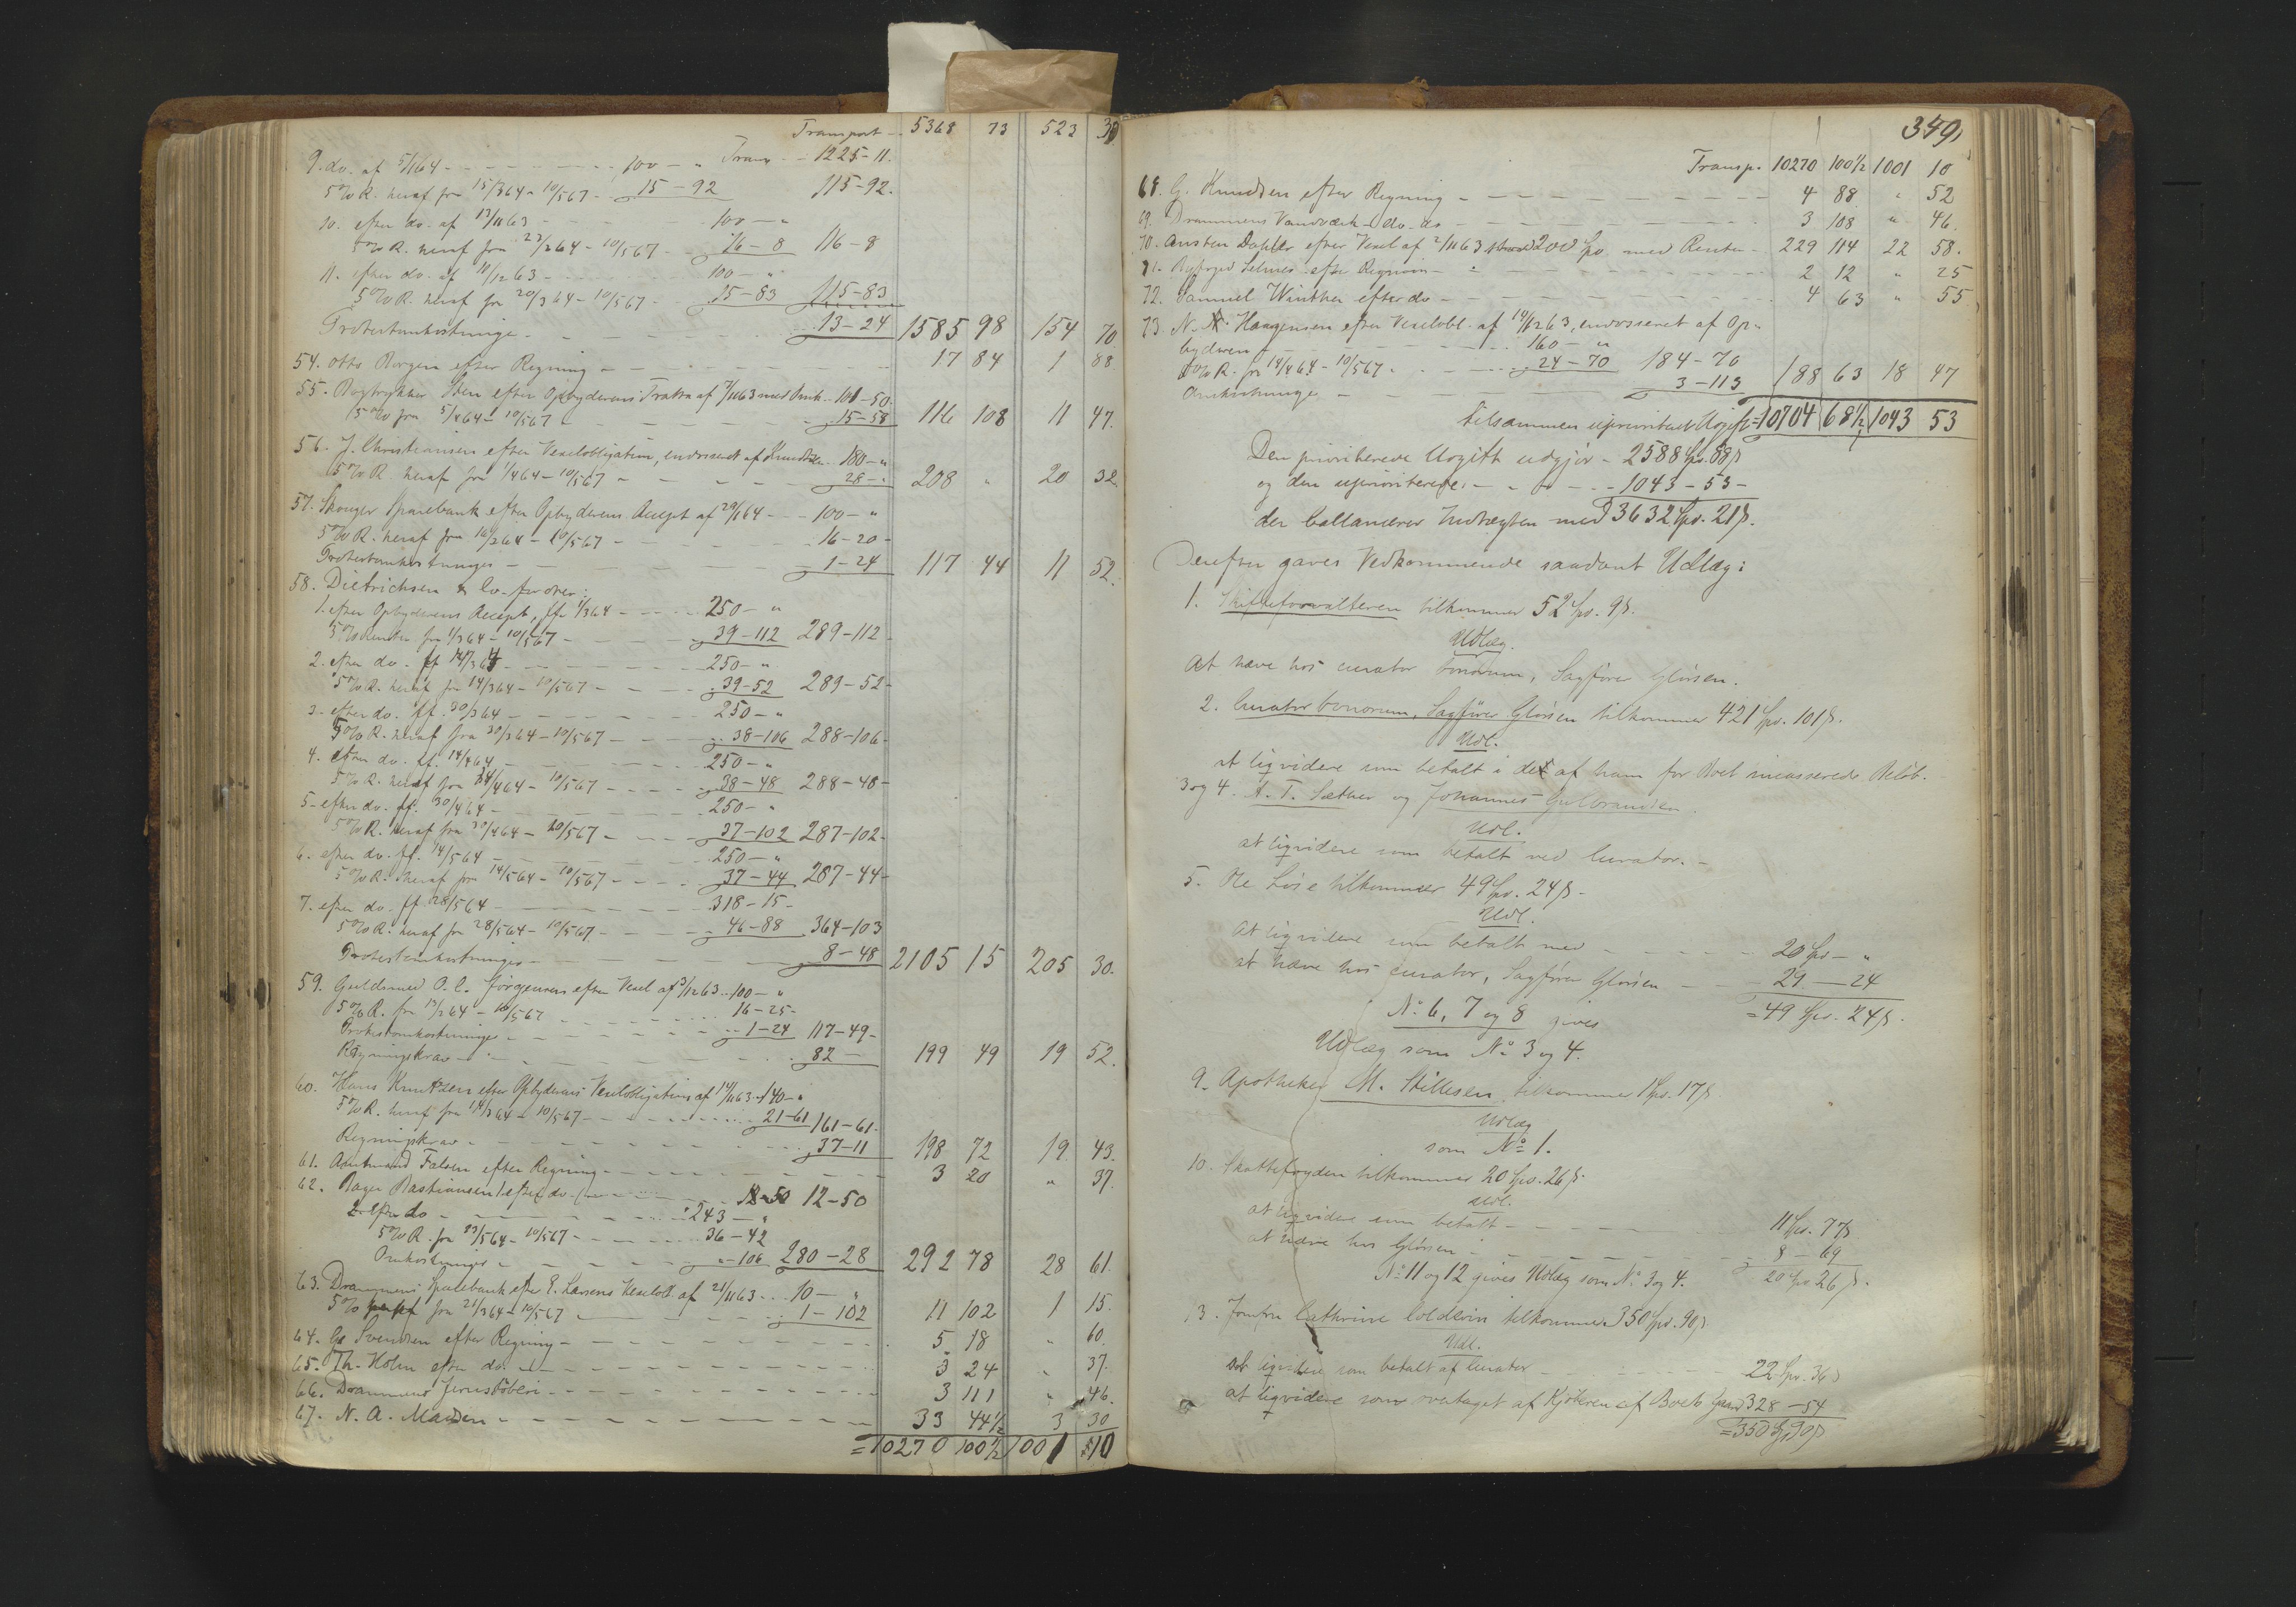 Transport - 5368 73 523 30
9. do. af 5/1 64 - 100 - " Transp. - 1225-11.
5% R. heraf fra 15/3 64 - 10/5 67 - 15-92 115-92.
10. efter do. af 13/11 63 - 100 - "
5% R. heraf fra 23/2 64 - 10/5 67 - 16-8 116-8
11. efter do. af 11/12 63 - 100 - "
5% R. heraf fra 20/3 64 - 10/5 67 - 15-83 115-83
Protestomkostninge - 13-24 1585 98 154 70
54. Otto Borgen efter Regning - 17 84 1 88
55. Bogtrykker Steen efter Opbyderens Tratta af 7/11 63 med Omk. 101-50.
5% fra 5/4 64 - 10/5 67 - 15-58 116 108 11 47.
56. J. Christiansen efter Vexelobligation, endosseret af Knudsen - 180 - "
5% R. heraf fra 1/4 64 - 10/5 67 - 28 - " 208 " 20 32.
57. Skouger Sparebank efter Opbyderens Accept af 29/1 64 - 100 - "
5% R. heraf fra 16/2 64 - 10/5 67 - 16-20 -
Protestomkostninger - 1-24 117 44 11 52.
58. Dietrichsen & Co. fordrer:
1. efter Opbyderens Accept, ff. 1/3 64 - 250 - "
5% Renter fra 1/3 64 - 10/5 67 - 39-112 289-112 -
2. efter do. ff 14/3 64 - 250 - "
5% R. heraf fra 14/3 64 - 10/5 67 - 39-52 289-52 -
3. efter do. ff. 30/3 64 - 250 - "
5% R. heraf fra 30/3 64 - 10/5 67 - 38-106 288-106 -
4. efter do. ff. 14/4 64 - 250 - "
5% R. heraf fra 14/4 64 - 10/5 67 - 38-48 288-48 -
5. efter do. ff. 30/4 64 - 250 - "
5% R. heraf fra 30/4 64 - 10/5 67 - 37-102 287-102 -
6. efter do. ff. 14/5 64 - 250 - "
5% R. heraf fra 14/5 64 - 10/5 67 - 37-44 287-44 -
7. efter do. ff 28/5 64 - 318-15 -
5% R. heraf fra 28/5 64 - 10/5 67 - 46-88 364-103
Protestomkostninger - 8-48 2105 15 205 30.
59. Guldsmed O. C. Jörgensen efter Vexel af 3/12 63 - 100 - "
5% R. fra 13/2 64 - 10/5 67 - 16-25 -
Protestomkostninger - 1-24 117-49 -
Regningskrav - 82 - 199 49 19 52.
60. Hans Knutzen efter Opbyderens Vexelobligation af 14/11 63 - 140 - "
5% R. heraf fra 14/3 64 - 10/5 67 - 21-61 161-61 -
Regningskrav - 37-11 198 72 19 43.
61. Amtmand Falsen efter Regning - 3 20 " 37.
62. Bager Bastiansen 1. efter do - 12-50 12-50
2. efter do - 243 - "
5% R. fra 23/5 64 - 10/5 67 - 36-42
Omkostninger - " - 106 280-28 292 78 28 61.
63. Drammens Sparebank efter E. Larsens Vexelobl. af 21/11 63 - 10 - "
5% heraf fra 21/3 64 - 10/5 67 - 1-102 11 102 1 15.
64. Svendsen efter Regning - 5 18 " 60.
65. Th. Holm efter do. - 3 24 " 37.
66. Drammens Jernstöberi - 3 111 " 46.
67. N. A. Madsen - 33 44½ 3 30
= 10270 100½ 1001 10
349
Transp. 10270 100½ 1001 10
68. G. Knudsen efter Regning - 4 88 " 52
69. Drammens Vandværk - do. do - 3 108 " 46.
70. Austen Dahler efter Vexel af 2/11 63 200 Spd. med Renter - 229 114 22 58.
71. Byfoged Selmer efter Regning - 2 12 " 25
72. Samuel Winther efter do - 4 63 " 55
73. N. N. Haagensen efter Vexelobl. af 14/12 63, endosseret af Op-
byderen - 160 - "
5% R. fra 14/4 64 - 10/5 67 - 24-70 184-70
Omkostninge - 3-113 188 63 18 47
tilsammen uprioriteret Udgift = 10704 68½ 1043 53
Den prioriterede Udgift udgjör - 2588 Spd. 88 ß
og den uprioriterede - 1043-53 -
der ballancerer Indtægten med 3632 Spd. 21 ß.
Derefter gaves Vedkommende saadant Udlæg:
1. Skifteforvalteren tilkommer 52 Spd. 9 ß.
Udlæg.
At hæve hos curator bonorum, Sagförer Glörsen.
2. Curator bonorum, Sagförer Glörsen tilkommer 421 Spd. 101 ß.
Udl.
at liqvidere som betalt i det af ham for Boet incasserede Belöb.
3 og 4. A. T. Sæther og Johannes Gulbrandsen.
Udl.
at liqvidere som betalt ved Curator. -
5. Ole Löse tilkommer 49 Spd. 24 ß.
Udl.
At liqvidere som betalt med - 20 Spd - "
at hæve hos curator, Sagförer Glörsen - 29 - 24
= 49 Spd. 24 ß.
No 6, 7 og 8 gives
Udlæg som No 3 og 4.
9. Apotheker M. Stillesen tilkommer 1 Spd. 17 ß
Udlæg
som No 1.
10. Skattefogden tilkommer 20 Spd. 26 ß.
Udl.
at liqvidere som betalt - 11 Spd. 77 ß
at hæve hos Glörsen - 8 - 69
20 Spd 26 ß.
No 11 og 12 gives Udlæg som No 3 og 4.
13. Jomfru Cathrine Colderin tilkommer 350 Spd. 90 ß
Udl.
at liqvidere som betalt af Curator - 22 Spd. 36 ß
at liqvidere som overtaget af Kjöberen af Boets Gaard 328 - 54
= 350 Spd 90 ß